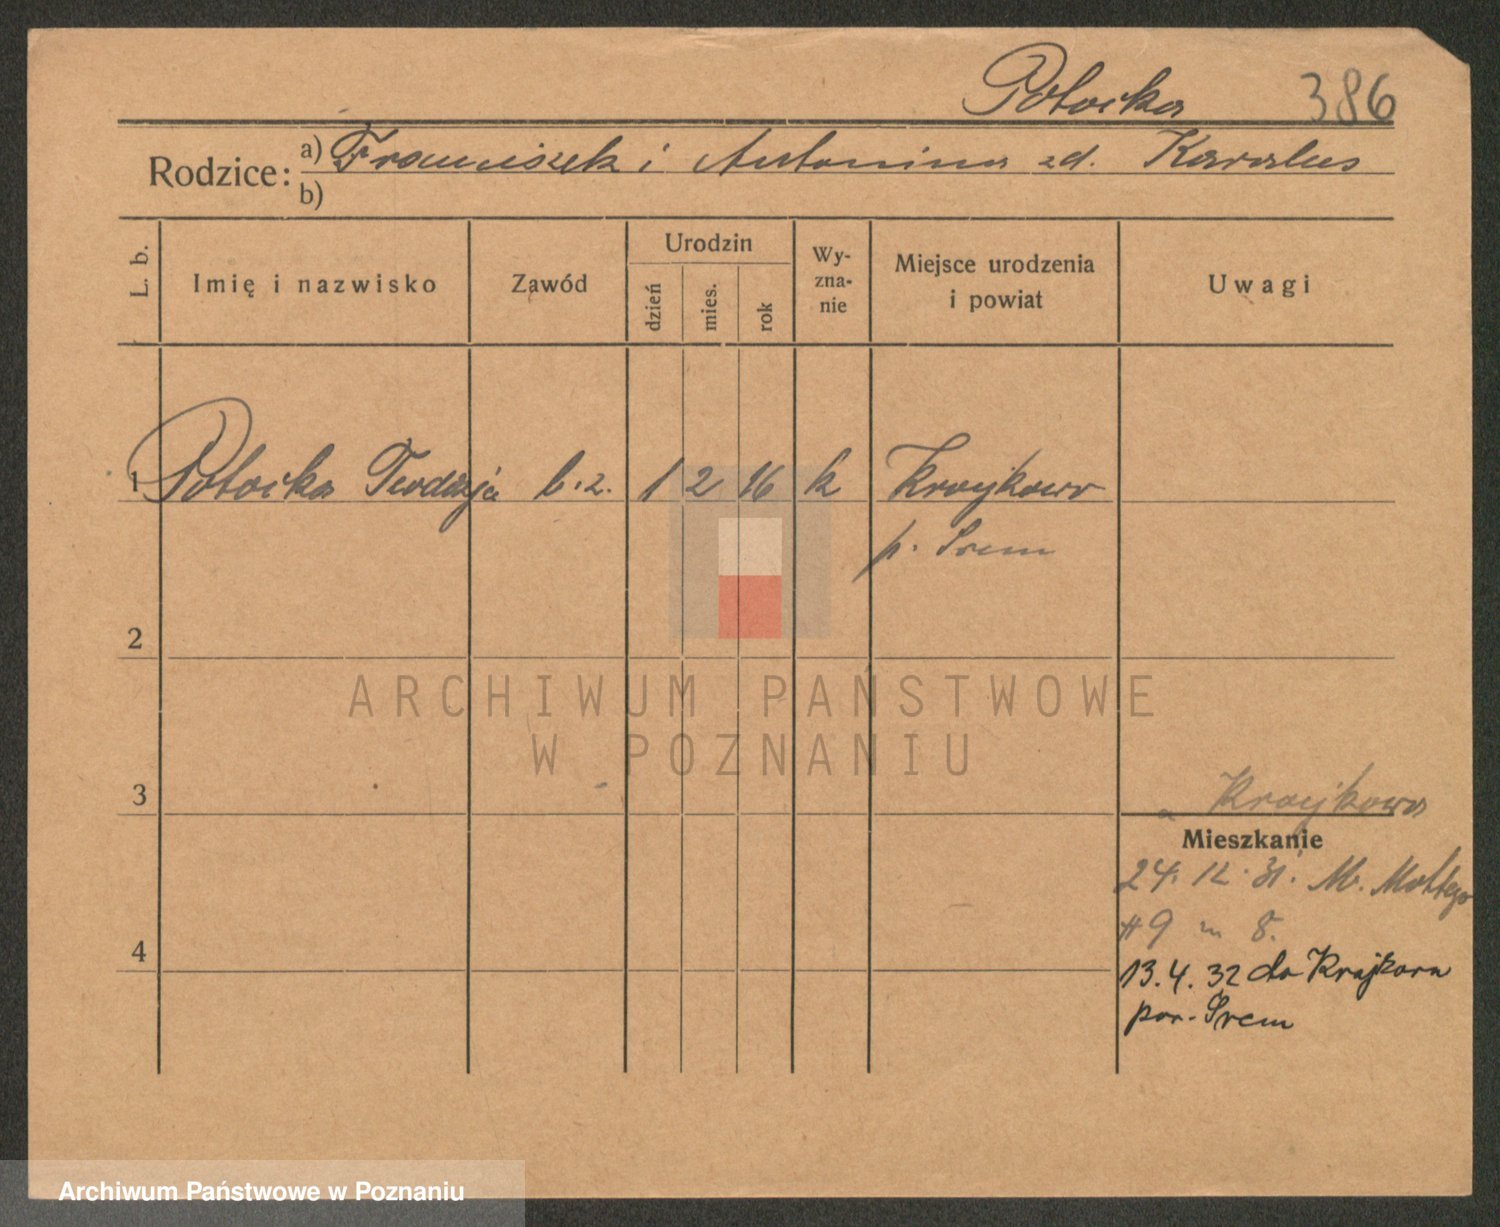 Potocka 386
Rodzice: a) Franciszek i Antonina zd. Karalus
b)
L. b. Imię i nazwisko Zawód Urodzin dzień mies. rok Wy-zna-nie Miejsce urodzenia i powiat Uwagi
1 Potocka Teodozja b.z. 1 2 16 k Krajkowo
p. Śrem
2
ARCHIWUM PAŃSTWOWE
W POZNANIU
3
z Krajkowa
Mieszkanie
24. 12. 31. M. Mottego
# 9 m 8.
4
13.4.32 do Krajkowa
pow. Śrem
Archiwum Państwowe w Poznaniu